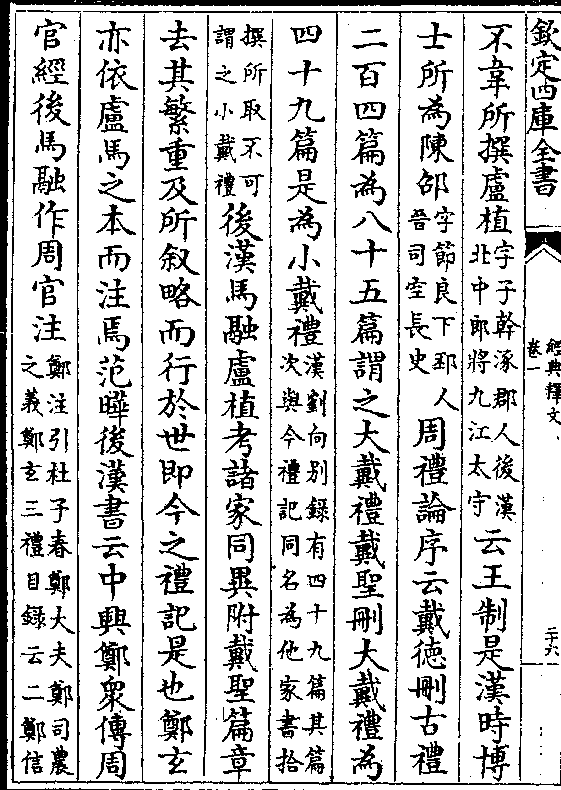 欽定四庫全書
經典釋文
卷一
二十六
不韋所撰盧植字子幹涿郡人後漢北中郎將九江太守云王制是漢時博
士所為陳邵字節良下邳人晉司空長史周禮論序云戴德刪古禮
二百四篇為八十五篇謂之大戴禮戴聖刪大戴禮為
四十九篇是為小戴禮漢劉向别錄有四十九篇其篇次與今禮記同名為他家書拾
撰所取不可謂之小戴禮後漢馬融盧植考諸家同異附戴聖篇章
去其繁重及所叙略而行於世即今之禮記是也鄭玄
亦依盧馬之本而注焉范曄後漢書云中興鄭衆傳周
官經後馬融作周官注鄭注引杜子春鄭大夫鄭司農之義鄭玄三禮目録云二鄭信